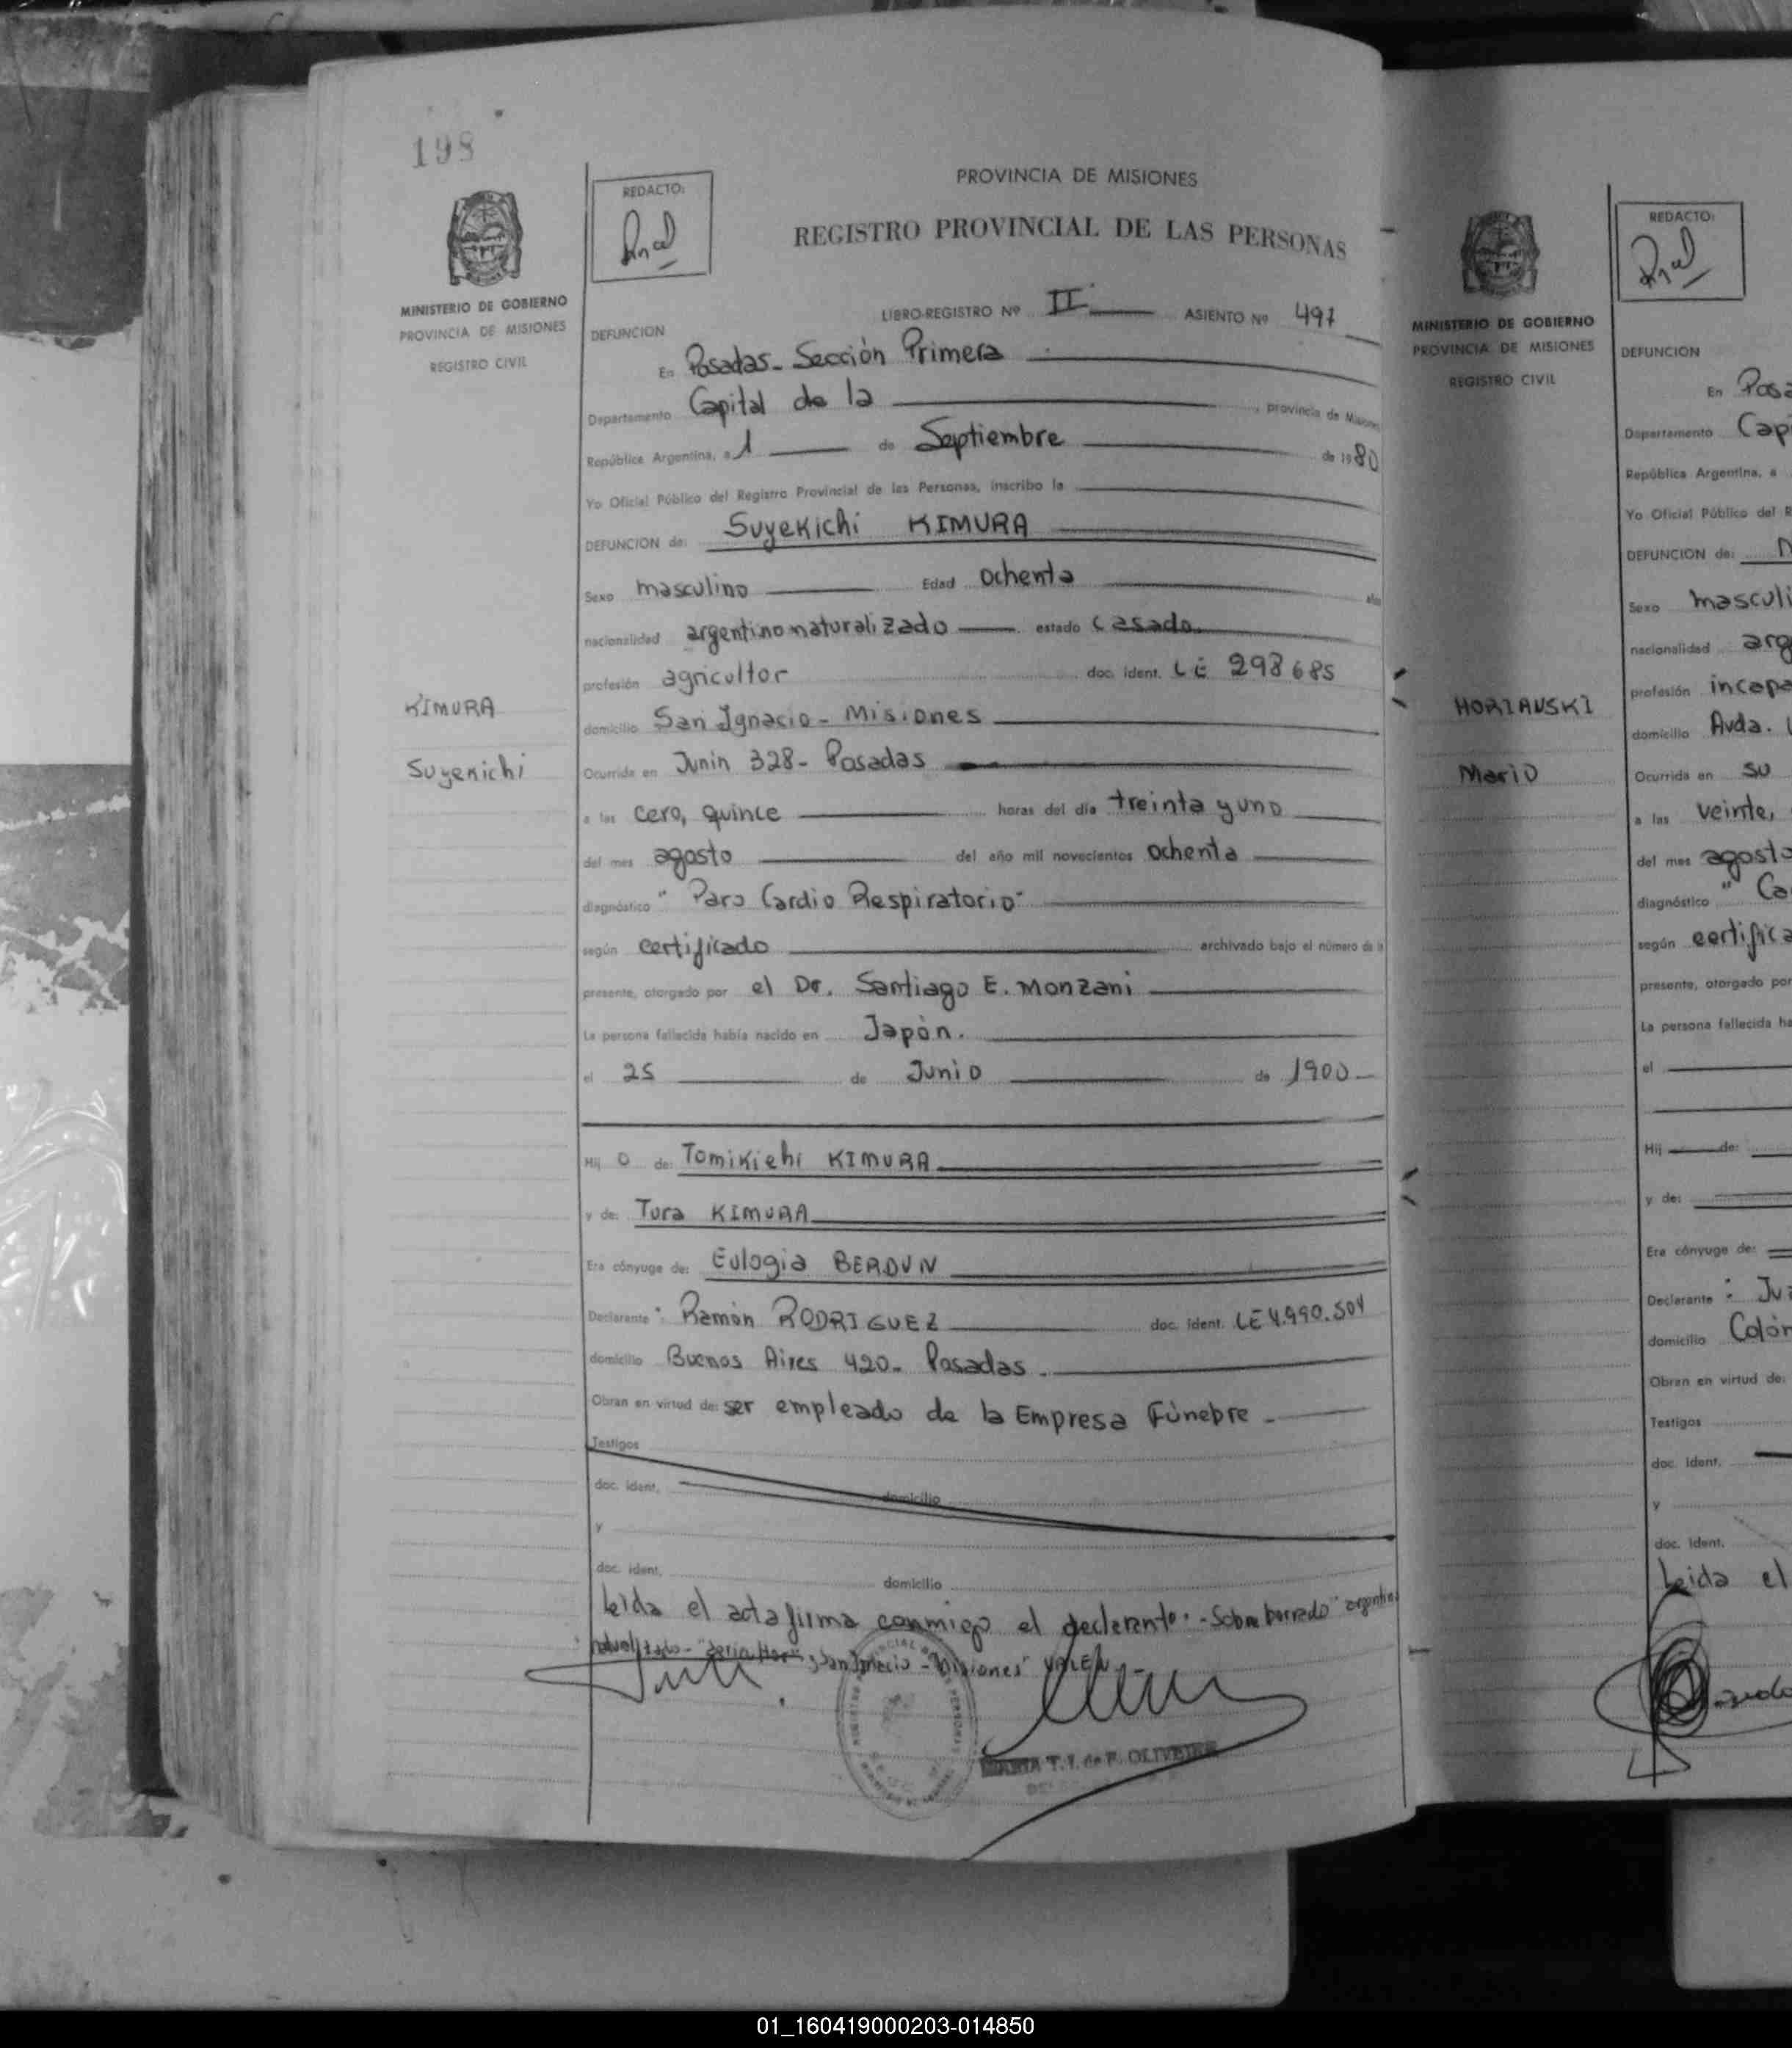 198
REDACTO:
PROVINCIA DE MISIONES
REGISTRO PROVINCIAL DE LAS PERSONAS
MINISTERIO DE GOBIERNO
PROVINCIA DE MISIONES
REGISTRO CIVIL
LIBRO-REGISTRO Nº II ASIENTO Nº 497
DEFUNCION
En Posadas - Sección Primera
Departamento Capital de la , provincia de Misiones
República Argentina, a 1 de Septiembre de 1980
Yo Oficial Público del Registro Provincial de las Personas, inscribo la
DEFUNCION de: Suyekichi KIMURA
Sexo masculino Edad ochenta años
nacionalidad argentino naturalizado estado casado
profesión agricultor doc. ident. LE 298685
KIMURA
Suyekichi
domicilio San Ignacio - Misiones
Ocurrida en Junin 328 - Posadas
a las cero, quince horas del día treinta y uno
del mes agosto del año mil novecientos ochenta
diagnóstico "Paro Cardio Respiratorio"
según certificado archivado bajo el número de la
presente, otorgado por el Dr. Santiago E. Monzani
La persona fallecida había nacido en Japón.
el 25 de Junio de 1900
Hij o de: Tomikichi KIMURA
y de: Tura KIMURA
Era cónyuge de: Eulogia BERDUN
Declarante: Ramón RODRIGUEZ doc. ident. LE 4.990.504
domicilio Buenos Aires 420 - Posadas.
Obran en virtud de: ser empleado de la Empresa Fúnebre -
Testigos
doc. ident. domicilio
y
doc. ident. domicilio
Leida el acta firma conmigo el declarante. - Sobre borrado "argentino
naturalizado - "agricultor", "San Ignacio - Misiones" VALEN
MARIA T. I. de F. OLIVEIRA
REDACTO:
MINISTERIO DE GOBIERNO
PROVINCIA DE MISIONES
REGISTRO CIVIL
DEFUNCION
En
Departamento
República Argentina, a
Yo Oficial Público del
DEFUNCION de:
Sexo
nacionalidad
profesión
HORIANSKI
Mario
domicilio Avda.
Ocurrida en su
a las veinte,
del mes agosto
diagnóstico
según
presente, otorgado por
La persona fallecida
el
Hij de:
y de:
Era cónyuge de:
Declarante:
domicilio
Obran en virtud de:
Testigos
doc. ident.
y
doc. ident.
Leida el
01_160419000203-014850